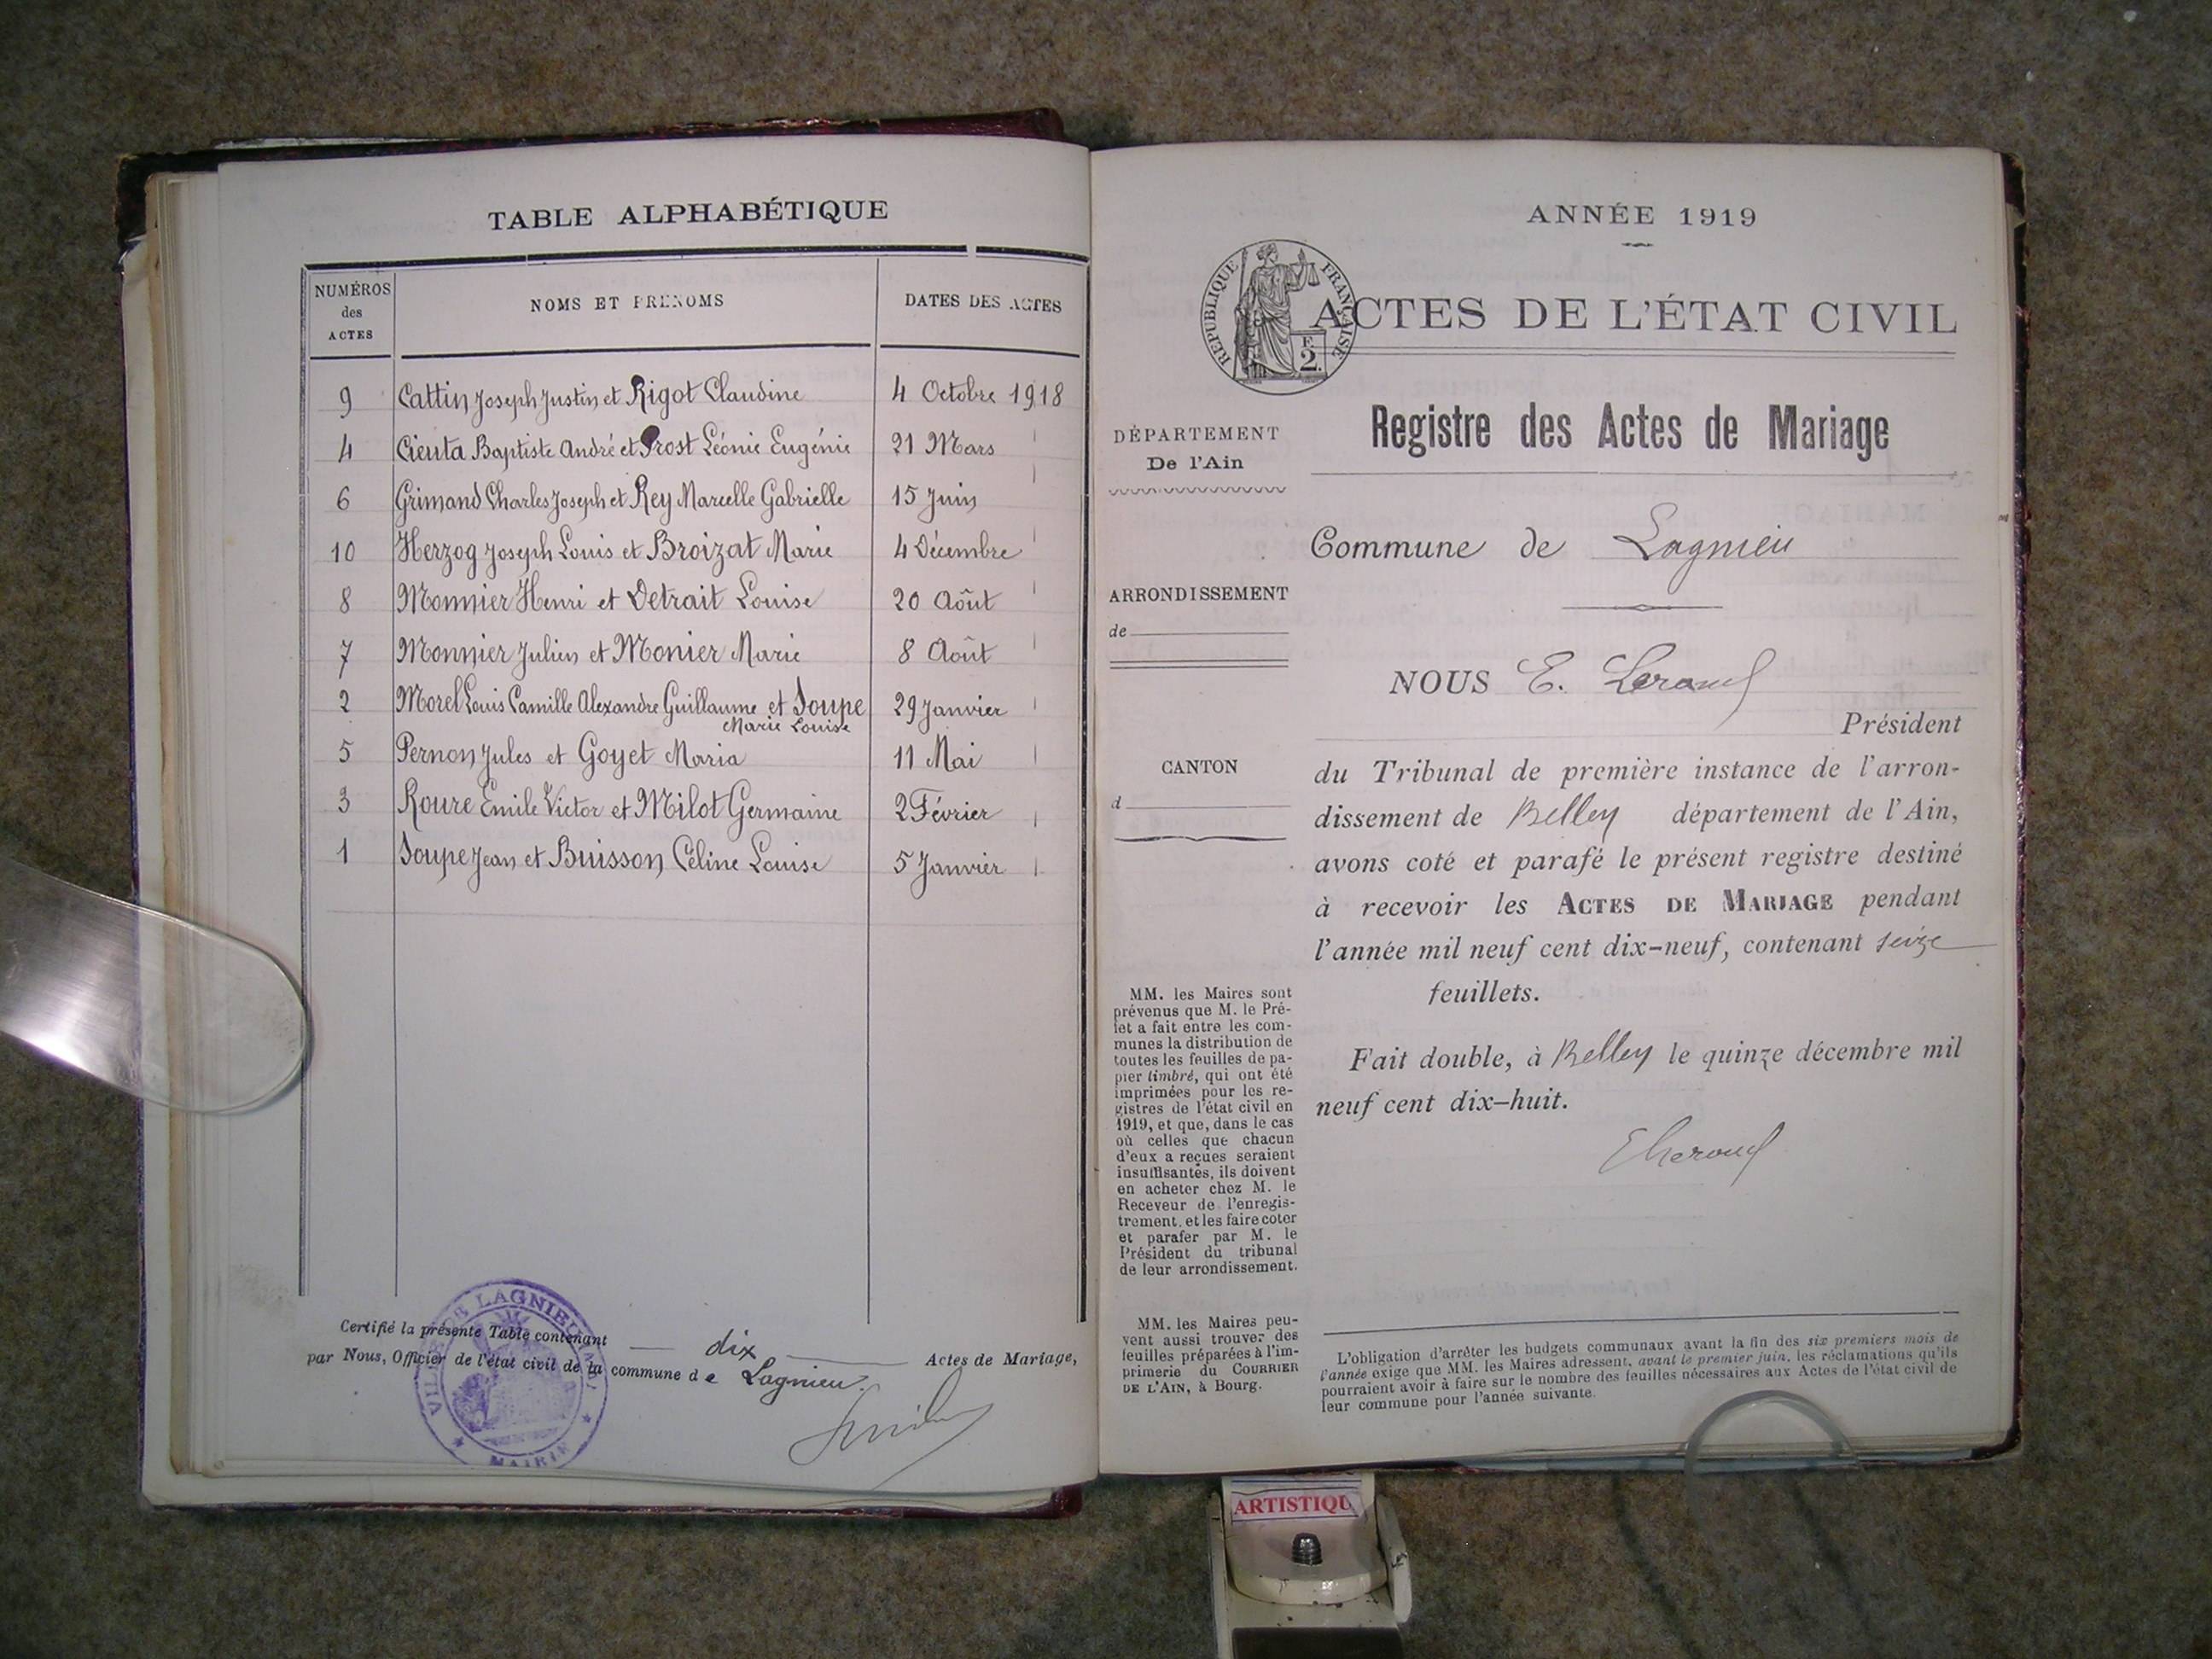 TABLE ALPHABÉTIQUE
NUMÉROS
des
ACTES
NOMS ET PRÉNOMS
DATES DES ACTES
9 Cattin Joseph Justin et Rigot Claudine 4 Octobre 1918
4 Cieuta Baptiste André et Prost Léonie Eugénie 21 Mars
6 Grimand Charles Joseph et Rey Marcelle Gabrielle 15 Juin
10 Herzog Joseph Louis et Broizat Marie 4 Décembre
8 Monnier Henri et Detrait Louise 20 Août
7 Monnier Julien et Monier Marie 8 Août
2 Morel Louis Camille Alexandre Guillaume et Soupe 29 Janvier
Marie Louise
5 Pernon Jules et Goyet Maria 11 Mai
3 Roure Emile Victor et Milot Germaine 2 Février
1 Soupe Jean et Buisson Céline Louise 5 Janvier
Certifié la présente Table contenant dix Actes de Mariage,
par Nous, Officier de l'état civil de la commune de Lagnieu.
VILLE DE LAGNIEU
MAIRIE
ANNÉE 1919
RÉPUBLIQUE FRANÇAISE
2
ACTES DE L'ÉTAT CIVIL
Registre des Actes de Mariage
DÉPARTEMENT
De l'Ain
Commune de Lagnieu
ARRONDISSEMENT
de
NOUS E.
Président
CANTON
d
du Tribunal de première instance de l'arron-
dissement de Belley département de l'Ain,
avons coté et parafé le présent registre destiné
à recevoir les ACTES DE MARIAGE pendant
l'année mil neuf cent dix-neuf, contenant seize
feuillets.
Fait double, à Belley le quinze décembre mil
neuf cent dix-huit.
MM. les Maires sont
prévenus que M. le Pré-
fet a fait entre les com-
munes la distribution de
toutes les feuilles de pa-
pier timbré, qui ont été
imprimées pour les re-
gistres de l'état civil en
1919, et que, dans le cas
où celles que chacun
d'eux a reçues seraient
insuffisantes, ils doivent
en acheter chez M. le
Receveur de l'enregis-
trement, et les faire coter
et parafer par M. le
Président du tribunal
de leur arrondissement.
MM. les Maires peu-
vent aussi trouver des
feuilles préparées à l'im-
primerie du COURRIER
DE L'AIN, à Bourg.
L'obligation d'arrêter les budgets communaux avant la fin des six premiers mois de
l'année exige que MM. les Maires adressent, avant le premier juin, les réclamations qu'ils
pourraient avoir à faire sur le nombre des feuilles nécessaires aux Actes de l'état civil de
leur commune pour l'année suivante.
ARTISTIQU